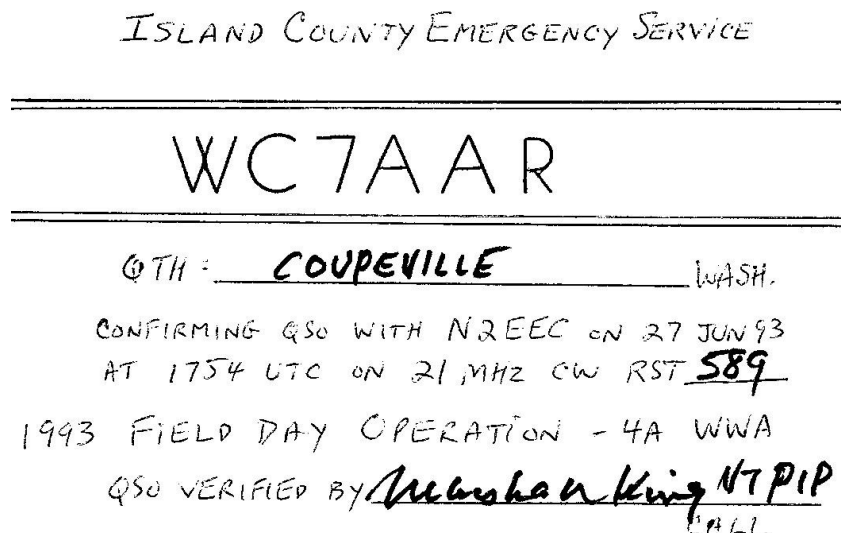 ISLAND COUNTY EMERGENCY SERVICE
WC7AAR
QTH: COUPEVILLE WASH.
CONFIRMING QSO WITH N2EEC ON 27 JUN 93
AT 1754 UTC ON 21 MHZ CW RST 589
1993 FIELD DAY OPERATION - 4A WWA
QSO VERIFIED BY Marshall King N7PIP
CALL